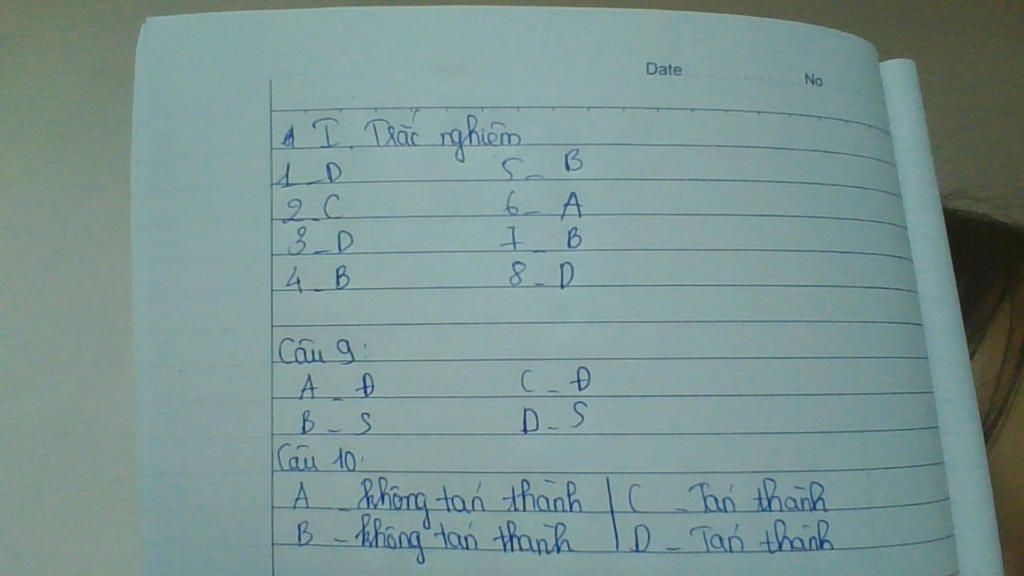 Date No
I. Trắc nghiệm
1_D 5_ B
2_C 6_ A
3_D 7_ B
4_B 8_D
Câu 9:
A_ Đ C_ Đ
B_ S D_ S
Câu 10:
A _ không tán thành | C _ Tán thành
B _ không tán thành | D _ Tán thành